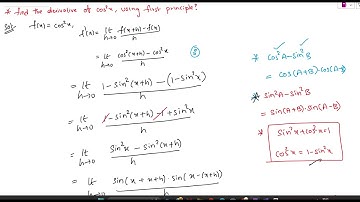 * find the derivative of cos²x, using first principle?
Sol: f(x) = cos²x, f'(x) = lt h→0 f(x+h) - f(x) / h
= lt h→0 cos²(x+h) - cos²x / h
= lt h→0 1 - sin²(x+h) - (1 - sin²x) / h
= lt h→0 1 - sin²(x+h) - 1 + sin²x / h
= lt h→0 sin²x - sin²(x+h) / h
= lt h→0 sin(x + x+h) · sin(x - (x+h)) / h
* cos²A - sin²B
= cos(A+B) · cos(A-B)
* sin²A - sin²B
= sin(A+B) · sin(A-B)
* sin²x + cos²x = 1
cos²x = 1 - sin²x